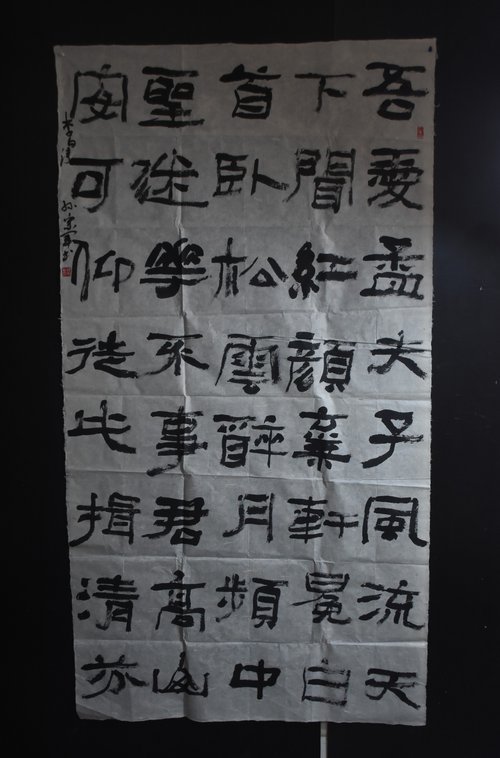 吾愛孟夫子風流天
下聞紅顔棄軒冕白
首臥松雲醉月頻中
聖迷華不事君高山
安可仰徒此揖清芬
李白诗